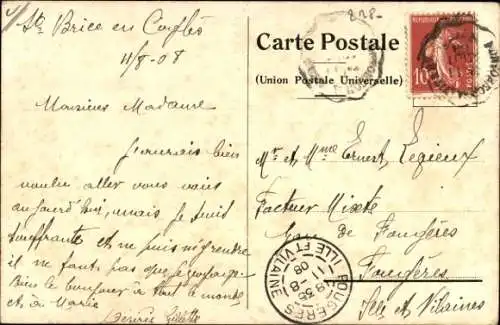 St Brice en Coglès
11/8-08
828-
Carte Postale
(Union Postale Universelle)
REPUBLIQUE FRANÇAISE
10
POSTES
Monsieur Madame
J'aurais bien
voulu aller vous voir
aujourd'hui, mais je suis
souffrante et ne puis m'y rendre
il ne faut pas que je voyage.
Bien le bonjour à tout le monde
et à Marie
Désirée
Mr et Mme Ernest Legieux
Facteur Mixte
Gare de Fougères
Fougères
Ille et Vilaine
FOUGERES
ILLE ET VILAINE
11-8
08